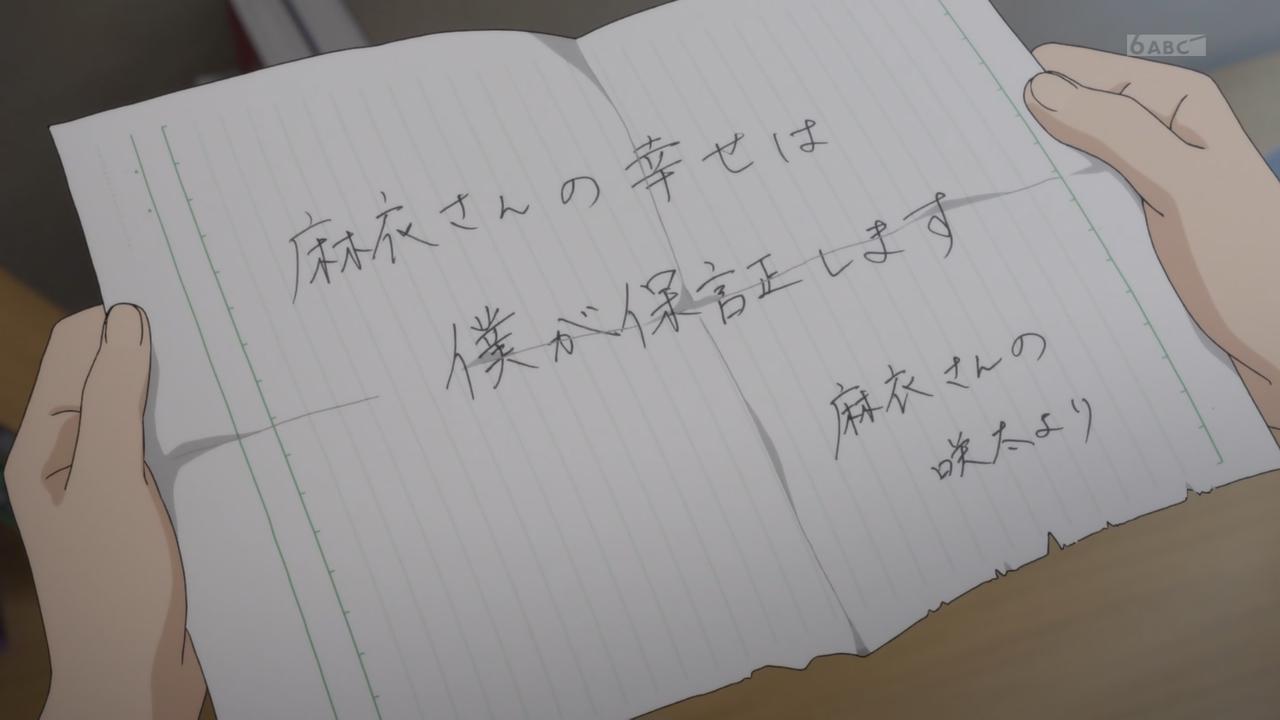 6 ABC
麻衣さんの幸せは
僕が保証します
麻衣さんの
咲太より